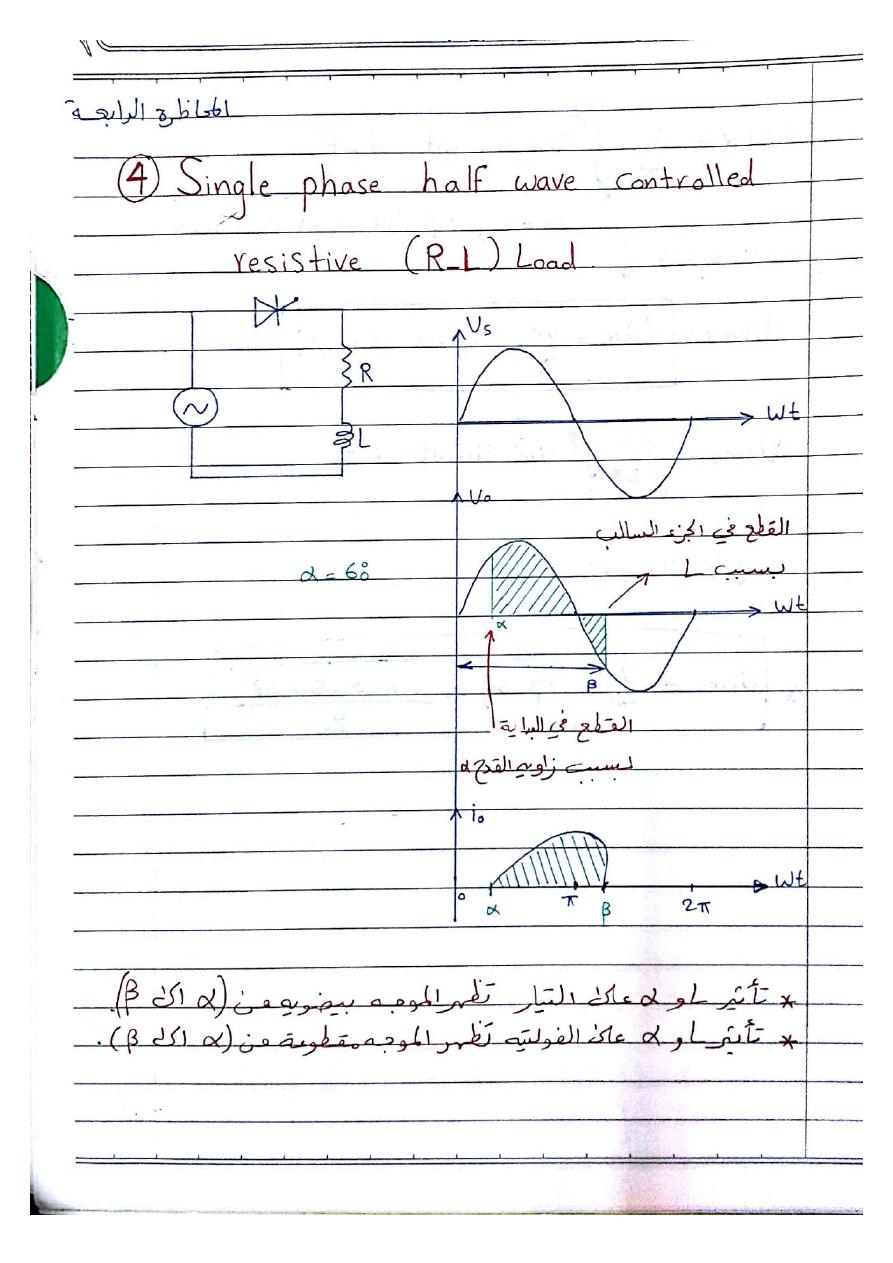 المحاظرة الرابعة
④ Single phase half wave controlled
resistive (R-L) Load
R
L
Vs
Wt
Vo
القطع في الجزء السالب
بسبب L
α = 60°
Wt
α
β
القطع في البداية
بسبب زاويه القدح α
io
Wt
0
α
π
β
2π
* تأثير L و α على التيار تظهر الموجه بيضويه من (α الى β).
* تأثير L و α على الفولتيه تظهر الموجه مقطوعة من (α الى β).